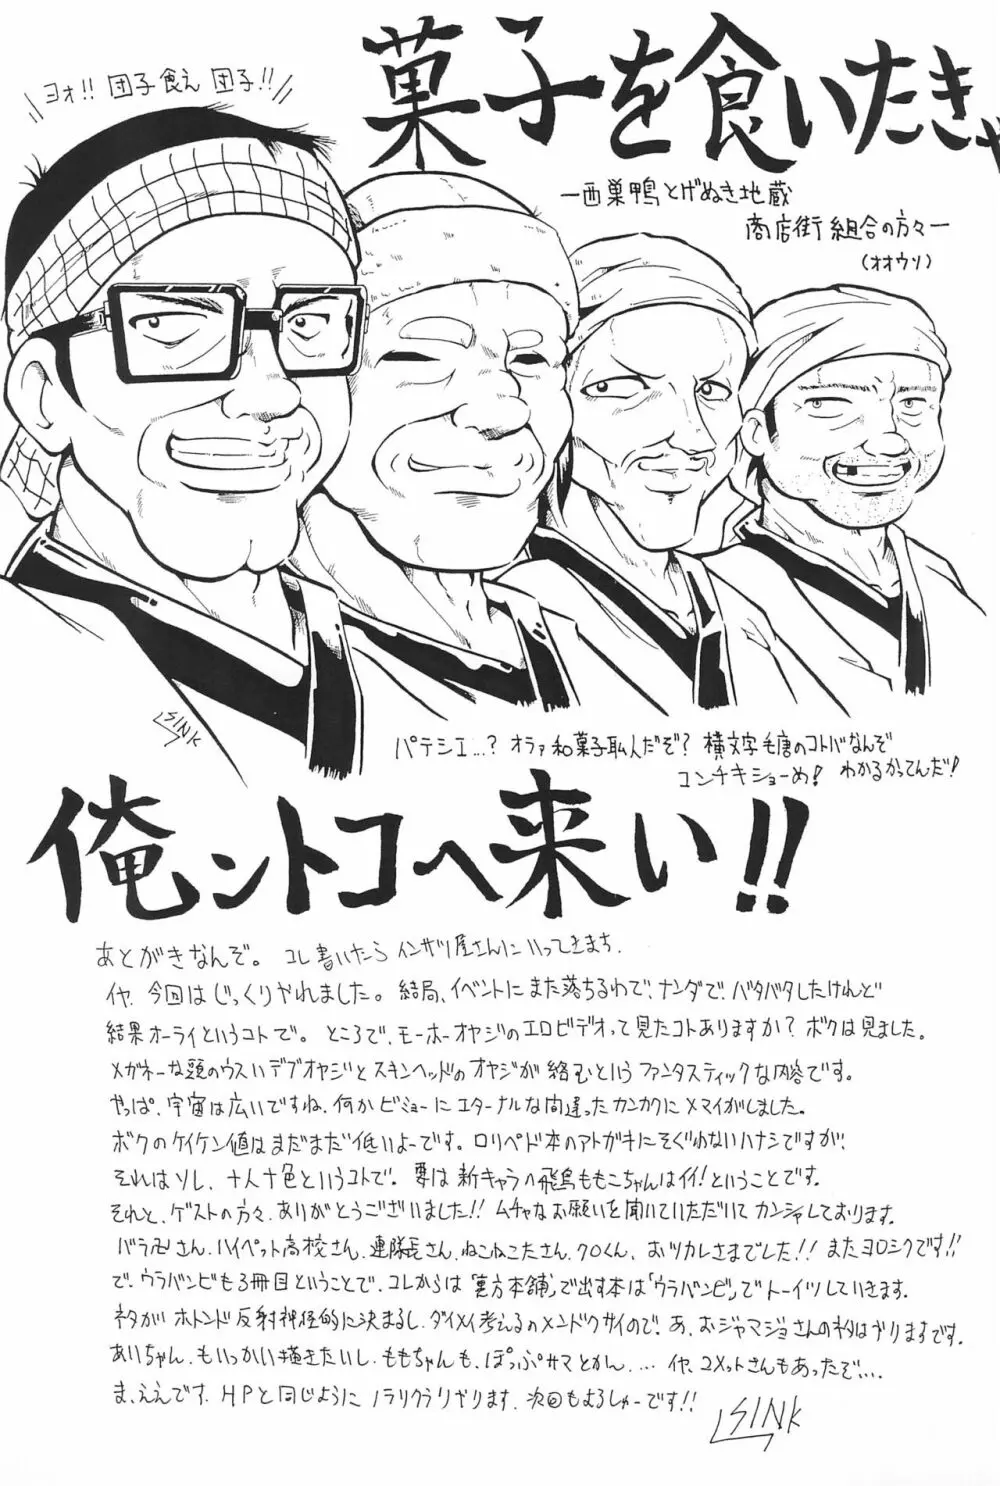 ヨォ!! 団子食え 団子!!
菓子を食いたきゃ
ー西巣鴨とげぬき地蔵
商店街組合の方々ー
(オオウソ)
SINK
パテシエ…? オラァ和菓子職人だぞ? 横文字毛唐のコトバなんぞ
コンチキショーめ! わかるかってんだ!
俺ントコへ来い!!
あとがきなんぞ。 コレ書いたらインサツ屋さんにいってきます.
イヤ、今回はじっくりやれました。結局、イベントにまた落ちるわで、ナンダで、バタバタしたけれど
結果オーライというコトで。ところで、モーホーオヤジのエロビデオって見たコトありますか? ボクは見ました。
メガネーな頭のウスいデブオヤジとスキンヘッドのオヤジが絡むというファンタスティックな内容です。
やっぱ、宇宙は広いですね、何かビミョーにエターナルな間違ったカンカクにメマイがしました。
ボクのケイケン値はまだまだ低いよーです。ロリペド本のアトガキにそぐわないハナシですが、
それはソレ、十人十色というコトで。要は新キャラの飛鳥ももこちゃんはイイ!ということです。
それと、ゲストの方々、ありがとうございました!! ムチャなお願いを聞いていただいてカンシャしております。
バラ卍さん、ハイペット高校さん、連隊長さん、ねこねこたさん、クロくん、おツカレさまでした!! またヨロシクです!!
で、ウラバンビも3冊目ということで、コレからは「裏方本舗」で出す本は「ウラバンビ」でトーイツしていきます。
ネタがホトンド反射神経的に決まるし、ダイメイ考えるのメンドクサイので。あ、おジャマジョさんのネタはヤりますです。
あいちゃん、もいっかい描きたいし、ももちゃんも、ぽっぷサマとかん、… イヤ、コメットさんもあったぞ…、
ま、ええです、HPと同じようにノラリクラリやります、次回もよろしゅーです!!
SINK